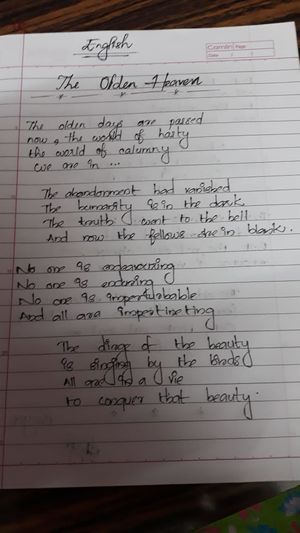 English
Camlin Page
Date / /
The Olden Heaven
The olden days are passed
now, the world of hasty
the world of calumny
we are in ...
The abandonment had vanished
The humanity is in the dark
The truth went to the hell
And now the fellows are in blank.
No one is endeavouring
No one is enduring
No one is imperturbable
And all are impertineting
The dirge of the beauty
is singing by the birds
All are in a vie
to conquer that beauty.